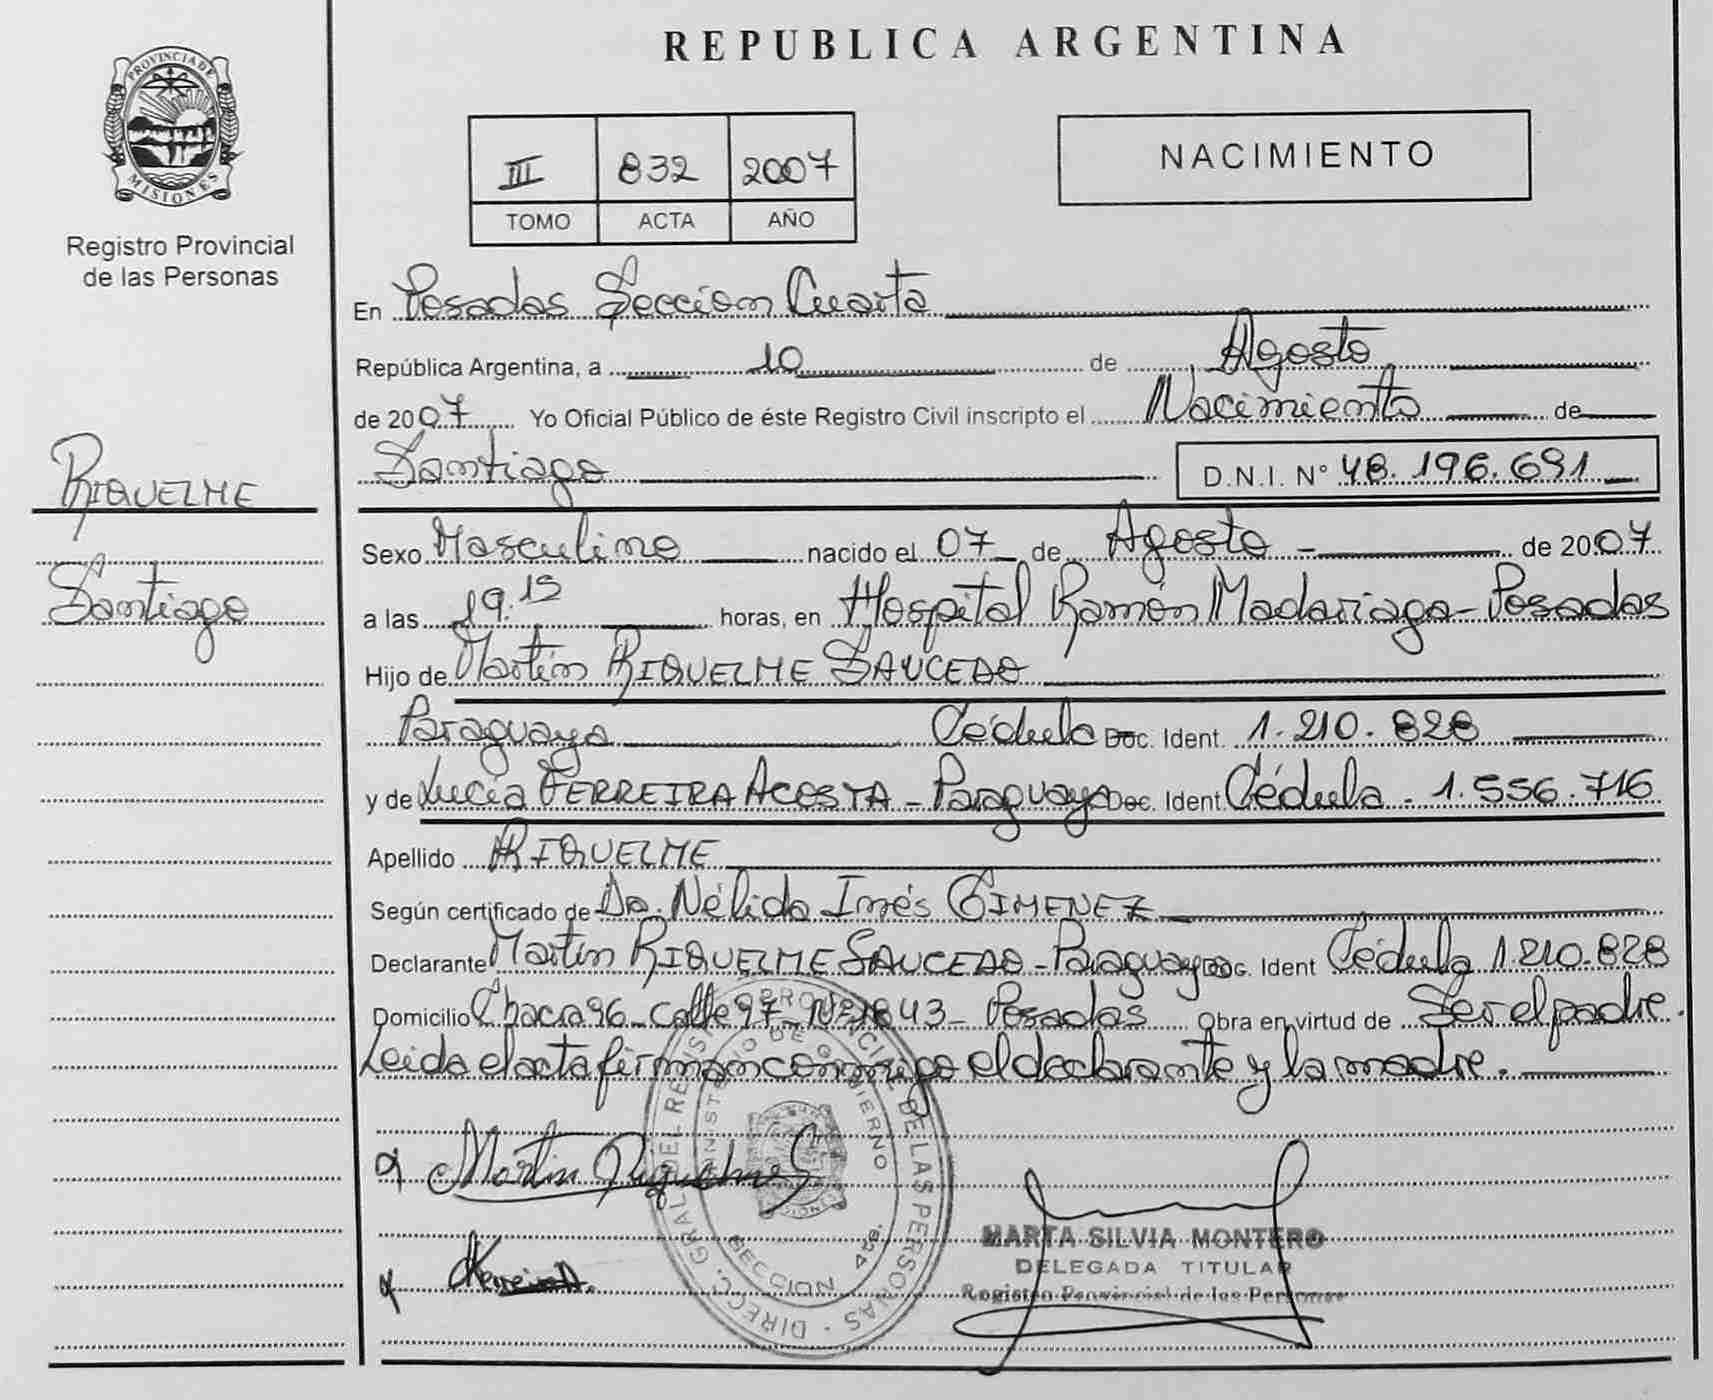 REPUBLICA ARGENTINA
PROVINCIA DE MISIONES
Registro Provincial
de las Personas
III 832 2007
TOMO ACTA AÑO
NACIMIENTO
En Posadas Sección Cuarta
República Argentina, a 10 de Agosto
de 2007 Yo Oficial Público de éste Registro Civil inscripto el Nacimiento de
Santiago D.N.I. N° 48.196.691
RIQUELME
Santiago
Sexo Masculino nacido el 07 de Agosto de 2007
a las 19.15 horas, en Hospital Ramón Madariaga - Posadas
Hijo de Martín RIQUELME SAUCEDO
Paraguaya Cédula Doc. Ident. 1.210.828
y de Lucía FERREIRA ACOSTA - Paraguaya Doc. Ident Cédula . 1.556.716
Apellido RIQUELME
Según certificado de Da. Nélida Inés GIMENEZ
Declarante Martín RIQUELME SAUCEDO - Paraguayo Doc. Ident Cédula 1.210.828
Domicilio Chacra 96 - calle 97 - N° 43 - Posadas Obra en virtud de Ser el padre.
Leida el acta firman conmigo el declarante y la madre.
Martin Riquelme S
Ferreira A.
DIRECC. GRAL. DEL REGISTRO PROVINCIAL DE LAS PERSONAS
MINISTERIO DE GOBIERNO
SECCION 4ta.
MARTA SILVIA MONTERO
DELEGADA TITULAR
Registro Provincial de las Personas